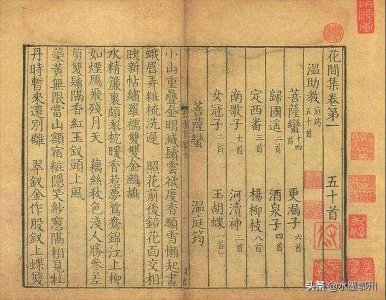 花間集卷第一　五十首
溫助教庭筠　五十首
菩薩蠻十四首　更漏子六首
歸國遙二首　酒泉子四首
定西番三首　楊柳枝八首
南歌子七首　河瀆神三首
女冠子二首　玉胡蝶一首
菩薩蠻　溫庭筠
小山重疊金明滅鬢雲欲度香顋雪懶起畫
蛾眉弄粧梳洗遲　照花前後鏡花面交相
映新帖繡羅襦雙雙金鷓鴣
水精簾裏頗黎枕暖香惹夢鴛鴦錦江上柳
如煙鴈飛殘月天　藕絲秋色淺人勝參差
剪雙鬢隔香紅玉釵頭上風
蘂黃無限當山額宿粧隱笑紗窗隔相見牡
丹時暫來還別離　翠釵金作股釵上蝶雙